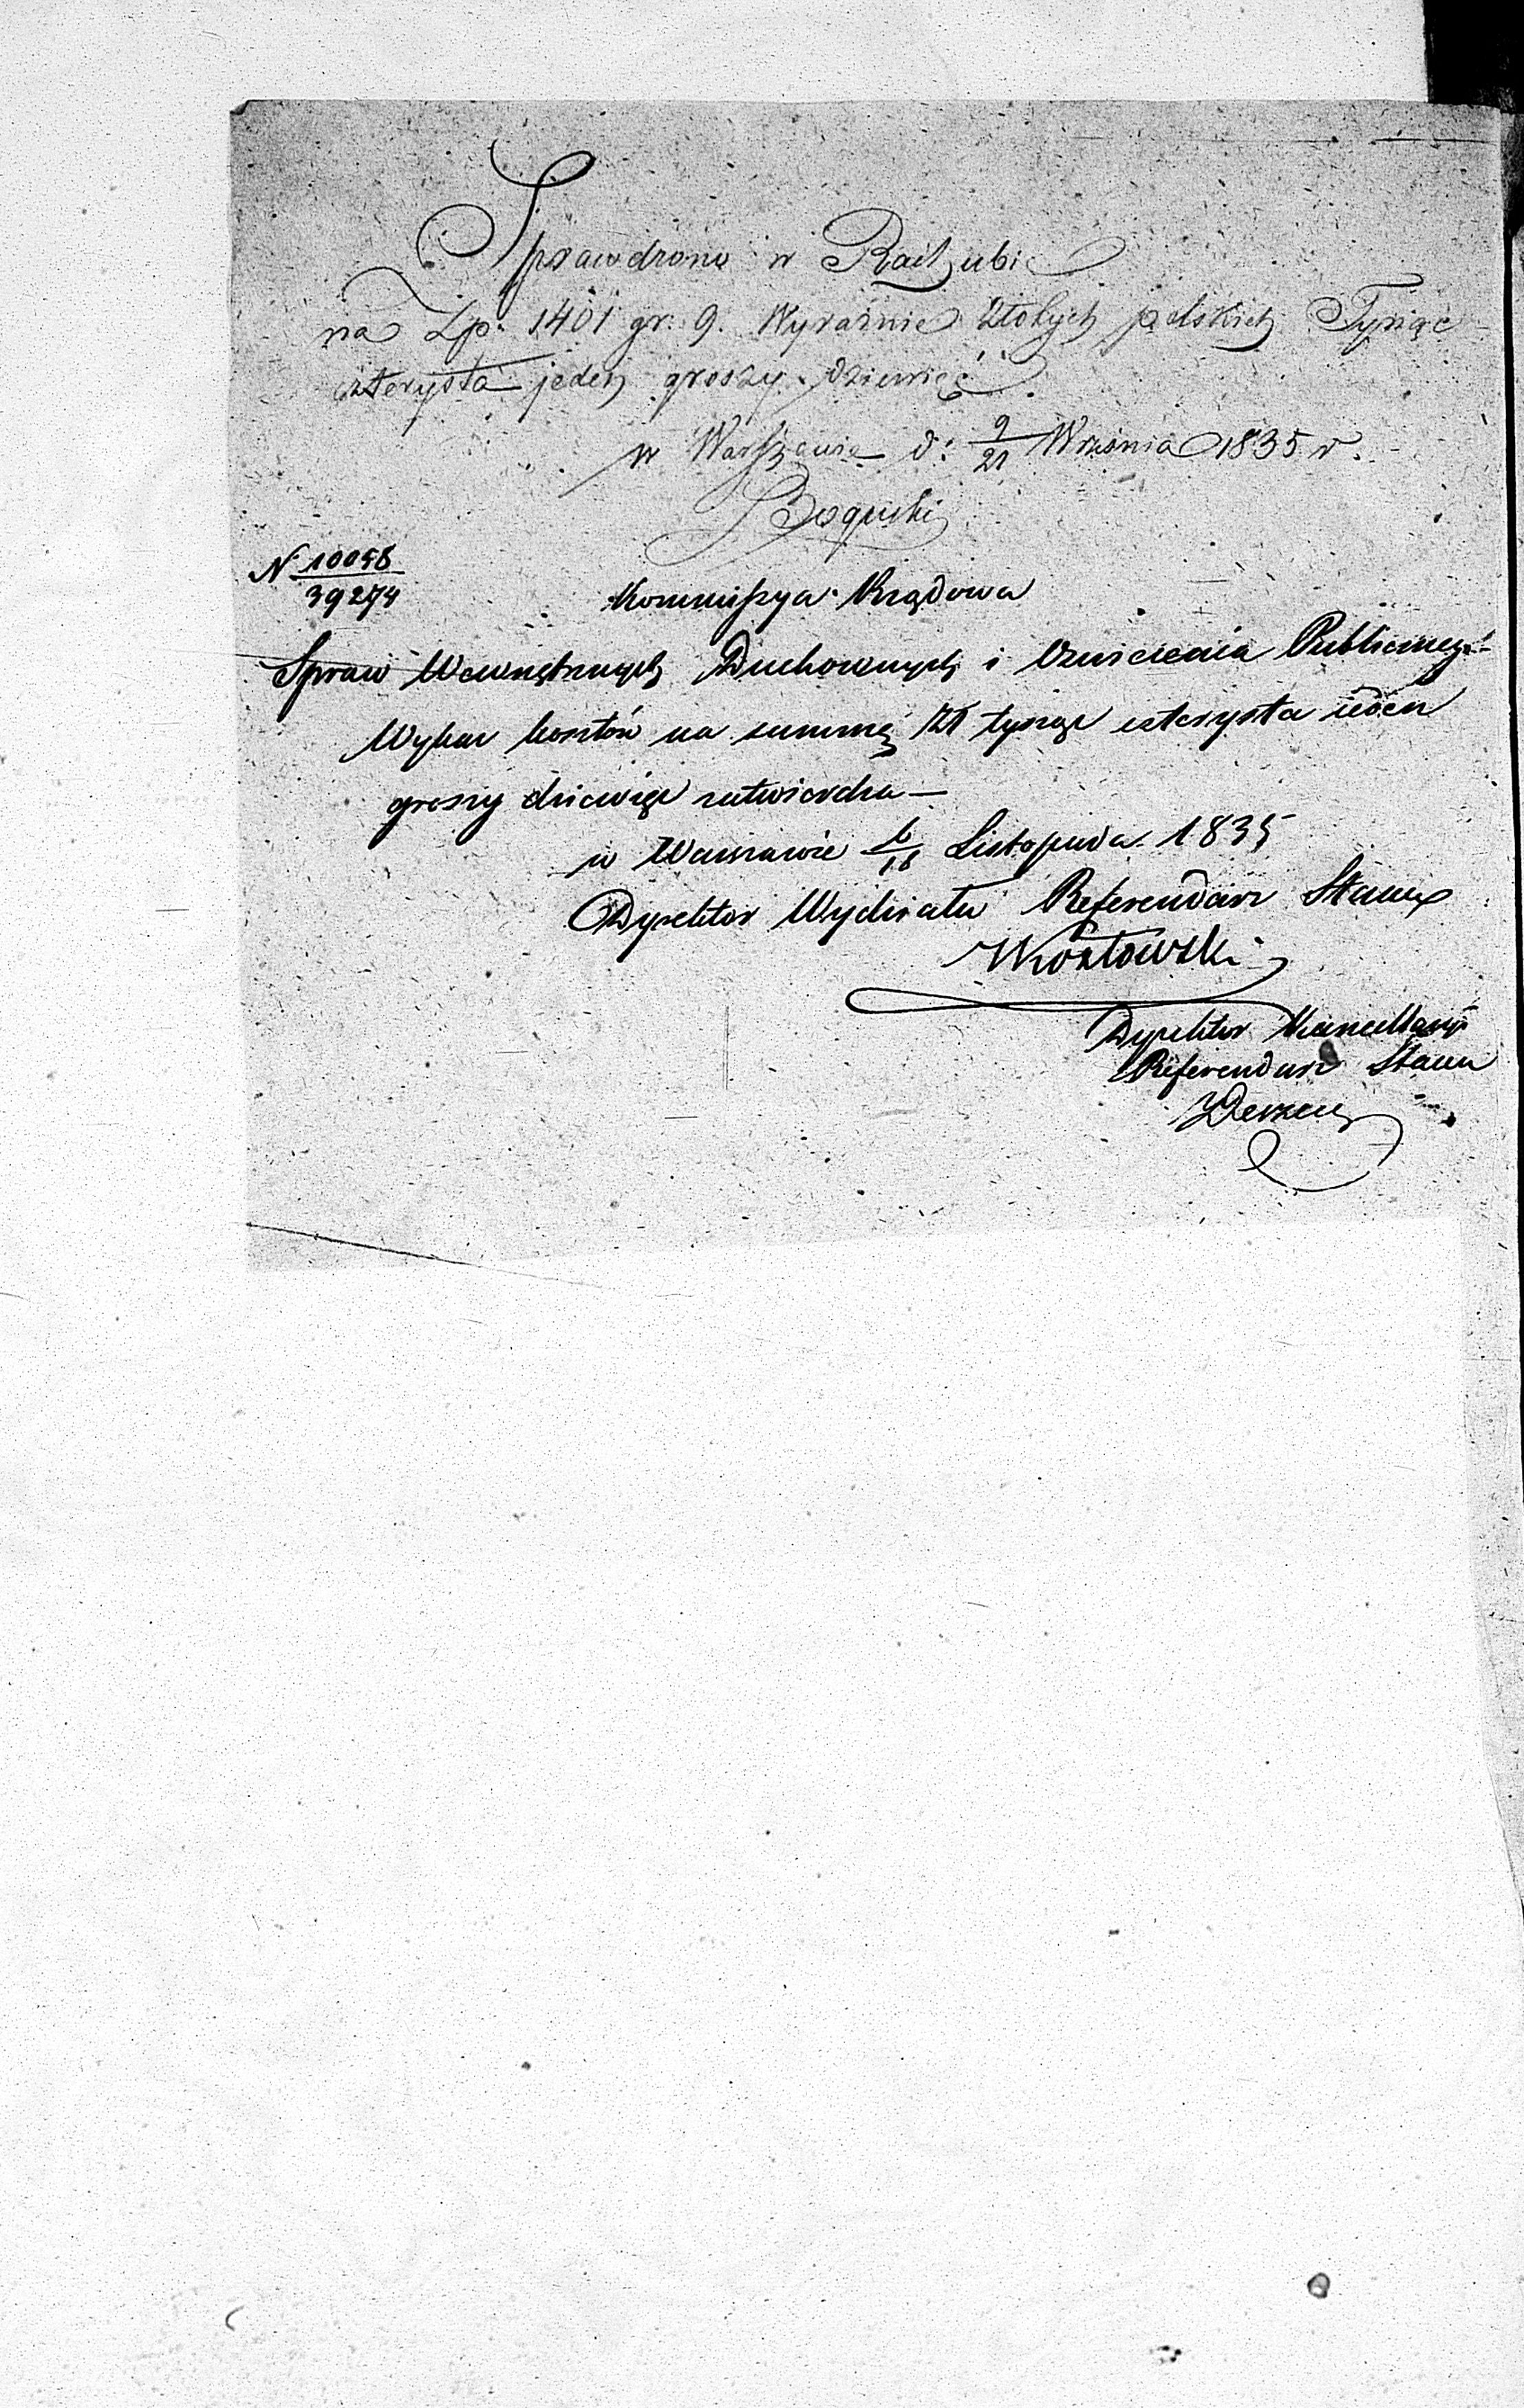 Sprawdzono w Rachubie
na Zp: 1401 gr: 9. Wyraźnie Złotych polskich Tysiąc
czterysta jeden groszy dziewięć.
w Warszawie d: 9/21 Września 1835 r.
Boguski
N. 10058/39274
Kommissya Rządowa
Spraw Wewnętrznych Duchownych i Oświecenia Publicznego
Wykaz kosztów na summę Zł tysiąc czterysta ieden
groszy dziewięć zatwierdza—
w Warszawie 6/18 Listopada 1835
Dyrektor Wydziału Referendarz Stanu
Kozłowski
Dyrektor Kancellaryi
Referendarz Stanu